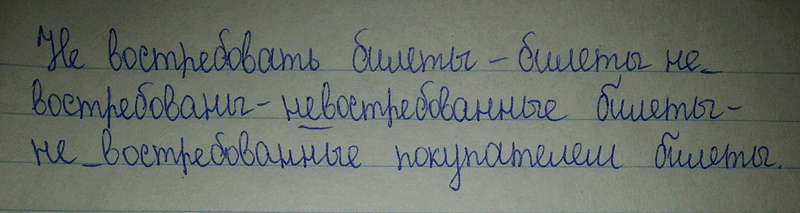 Не востребовать билеты – билеты не_
востребованы – невостребованные билеты –
не_востребованные покупателем билеты.